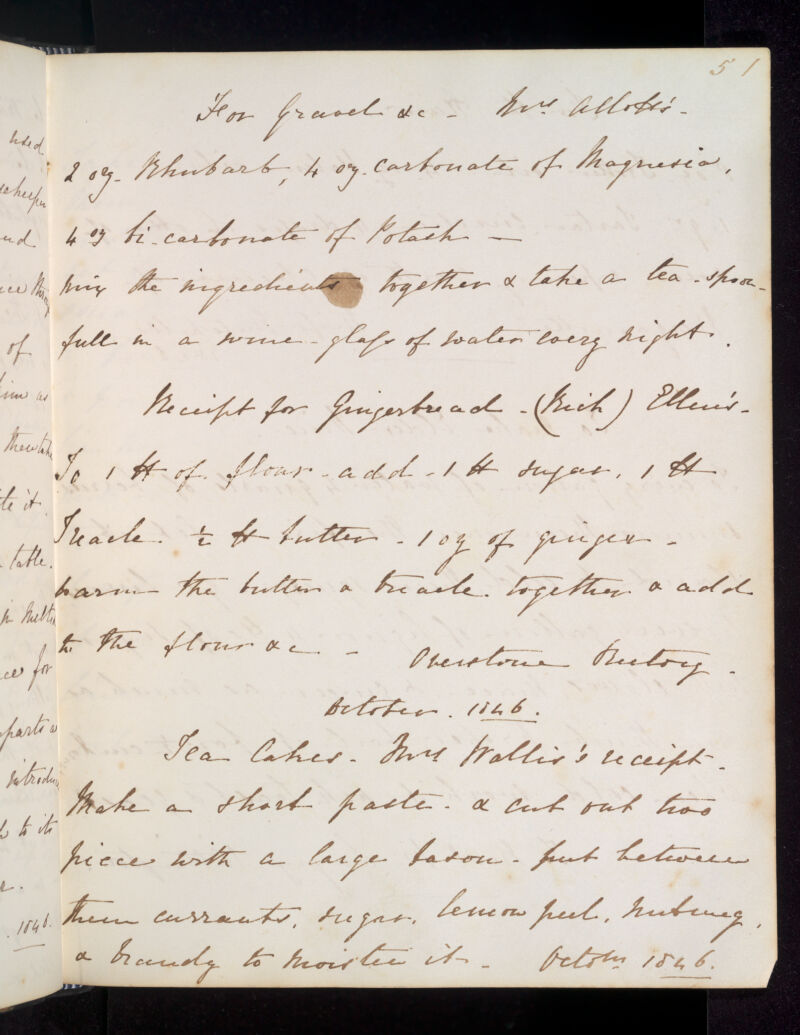 51
For Gravel &c - Mrs Allott's -
2 oz. Rhubarb, 4 oz. carbonate of Magnesia,
4 oz bi-carbonate of Potash —
Mix the ingredients together & take a tea-spoon-
full in a wine-glass of water every night.
Receipt for Gingerbread - (Rich) Ellen's -
To 1 lb of flour - add - 1 lb sugar. 1 lb
Treacle. ½ lb butter - 1 oz of ginger -
warm the butter & treacle together & add
to the flour &c - Overstone Rectory -
October. 1846.
Tea Cakes - Mrs Wallis's receipt -
Make a short paste. & cut out two
piece with a large bason - put between
them currants, sugar, lemon peel, nutmeg,
& brandy to moisten it - Octobr 1846.
used
and
of
then take
it
table.
for
parts
introduce
to its
1846.